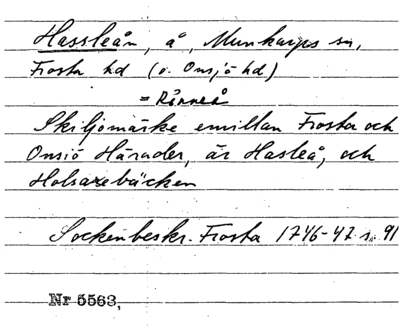 Hassleån, å, Munkarps sn,
Frosta hd (o. Onsjö hd)
= Rönneå
Skiljomärke emillan Frosta och
Onsiö Härader, är Hasleå, och
Holsarebäcken
Sockenbeskr. Frosta 1746-47 s. 91
Nr 5563,